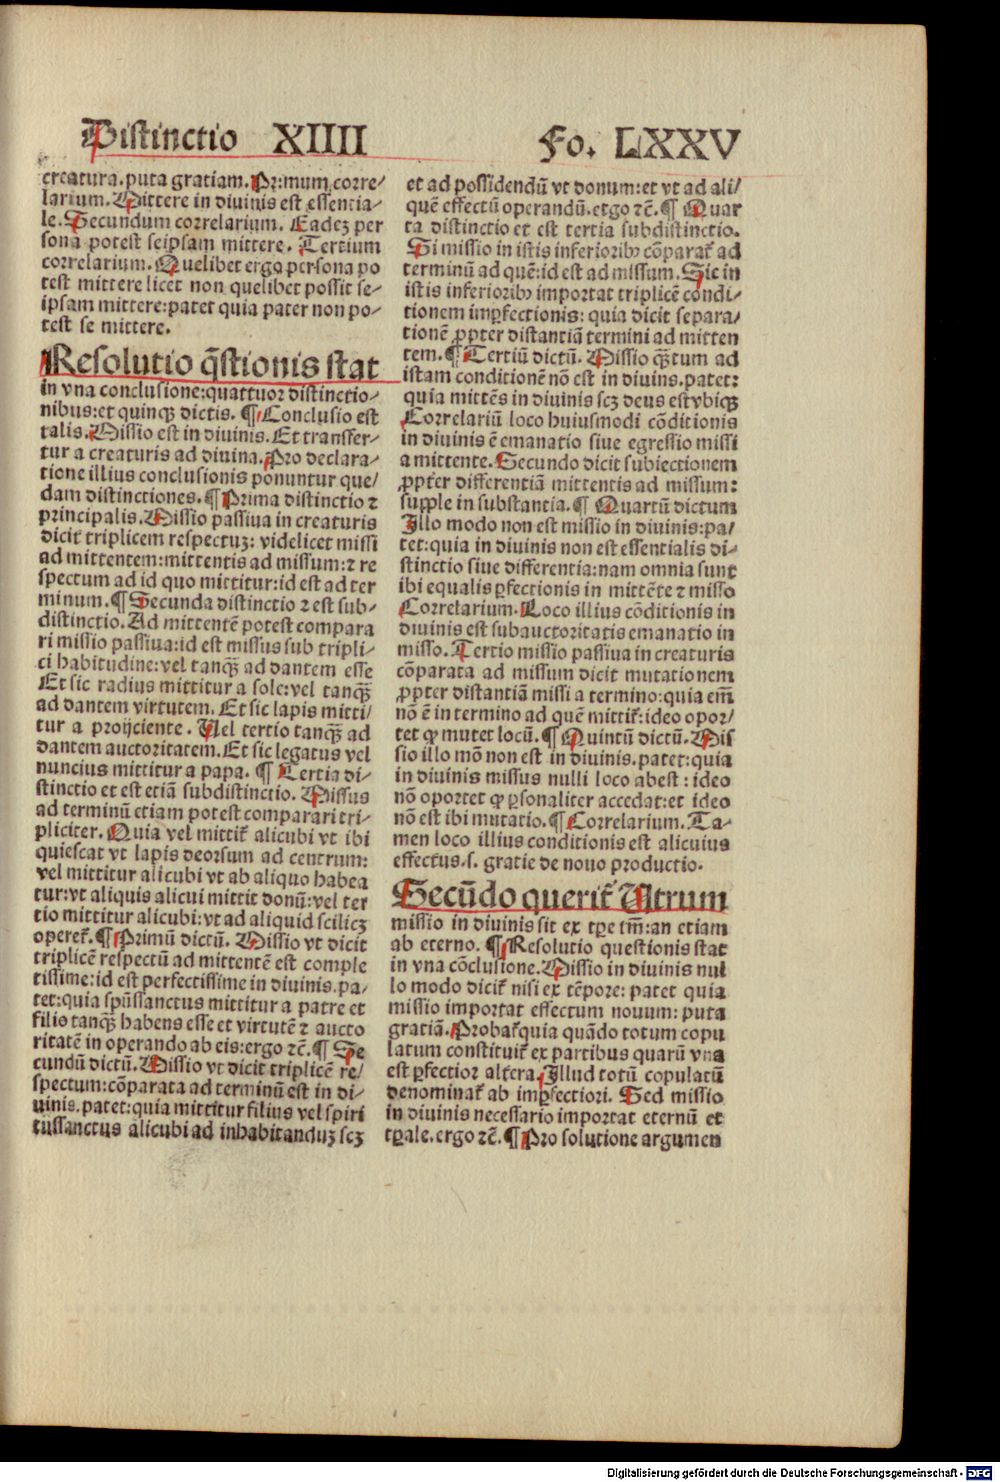 Distinctio XIIII
Fo. LXXV
creatura.puta gratiam. Primum corre⸗
larium. Mittere in diuinis est essentia⸗
le. Secundum correlarium. Eadeꝫ per
sona potest seipsam mittere. Tertium
correlarium. Quelibet ergo persona po
test mittere licet non quelibet possit se⸗
ipsam mittere:patet quia pater non po⸗
test se mittere.
Resolutio q̄stionis stat
in vna conclusione:quattuor distinctio⸗
nibus:et quinqꝫ dictis. ¶ Conclusio est
talis. Missio est in diuinis. Et transfer⸗
tur a creaturis ad diuina. Pro declara⸗
tione illius conclusionis ponuntur que⸗
dam distinctiones. ¶ Prima distinctio ⁊
principalis. Missio passiua in creaturis
dicit triplicem respectuꝫ: videlicet missi
ad mittentem:mittentis ad missum:⁊ re
spectum ad id quo mittitur:id est ad ter
minum. ¶ Secunda distinctio ⁊ est sub⸗
distinctio. Ad mittentē potest compara
ri missio passiua:id est missus sub tripli⸗
ci habitudine:vel tanqꝫ̄ ad dantem esse
Et sic radius mittitur a sole:vel tanqꝫ̄
ad dantem virtutem. Et sic lapis mitti⸗
tur a proijciente. Uel tertio tanqꝫ̄ ad
dantem auctoritatem. Et sic legatus vel
nuncius mittitur a papa. ¶ Tertia di⸗
stinctio et est etiā subdistinctio. Missus
ad terminū etiam potest comparari tri⸗
pliciter. Quia vel mittit̄ alicubi vt ibi
quiescat vt lapis deorsum ad centrum:
vel mittitur alicubi vt ab aliquo habea
tur:vt aliquis alicui mittit donū:vel ter
tio mittitur alicubi:vt ad aliquid scilicꝫ
operet̄. ¶ Primū dictū. Missio vt dicit
triplicē respectū ad mittentē est comple
tissime:id est perfectissime in diuinis.pa⸗
tet:quia spūssanctus mittitur a patre et
filio tanqꝫ̄ habens esse et virtutē ⁊ aucto
ritatē in operando ab eis:ergo ⁊c̄. ¶ Se
cundū dictū. Missio vt dicit triplicē re⸗
spectum:cōparata ad terminū est in di⸗
uinis.patet:quia mittitur filius vel spiri
tussanctus alicubi ad inhabitanduꝫ scꝫ
et ad possidendū vt donum:et vt ad ali⸗
quē effectū operandū.ergo ⁊c̄. ¶ Quar
ta distinctio et est tertia subdistinctio.
Si missio in istis inferioribꝰ cōparat̄ ad
terminū ad quē:id est ad missum. Sic in
istis inferioribꝰ importat triplicē condi⸗
tionem imꝑfectionis: quia dicit separa⸗
tionē ꝓpter distantiā termini ad mitten
tem. ¶ Tertiū dictū. Missio qꝫ̄tum ad
istam conditionē nō est in diuinis.patet:
quia mittēs in diuinis scꝫ deus est vbiqꝫ
Correlariū loco huiusmodi cōditionis
in diuinis ē emanatio siue egressio missi
a mittente. Secundo dicit subiectionem
ꝓpter differentiā mittentis ad missum:
supple in substantia. ¶ Quartū dictum
Illo modo non est missio in diuinis:pa⸗
tet:quia in diuinis non est essentialis di⸗
stinctio siue differentia:nam omnia sunt
ibi equalis ꝑfectionis in mittēte ⁊ misso
Correlarium. Loco illius cōditionis in
diuinis est subauctoritatis emanatio in
misso. Tertio missio passiua in creaturis
cōparata ad missum dicit mutationem
ꝓpter distantiā missi a termino:quia em̄
nō ē in termino ad quē mittit̄:ideo opor⸗
tet ꝙ mutet locū. ¶ Quintū dictū. Mis
sio illo mō non est in diuinis.patet:quia
in diuinis missus nulli loco abest: ideo
nō oportet ꝙ ꝑsonaliter accedat:et ideo
nō est ibi mutatio. ¶ Correlarium. Ta⸗
men loco illius conditionis est alicuius
effectus.s. gratie de nouo productio.
Secūdo querit̄ Utrum
missio in diuinis sit ex tꝑe tm̄:an etiam
ab eterno. ¶ Resolutio questionis stat
in vna cōclusione. Missio in diuinis nul
lo modo dicit̄ nisi ex tēpore: patet quia
missio importat effectum nouum: puta
gratiā. Probat̄ quia quādo totum copu
latum constituit̄ ex partibus quarū vna
est ꝑfectior altera. Illud totū copulatū
denominat̄ ab imꝑfectiori. Sed missio
in diuinis necessario importat eternū et
tꝑale.ergo ⁊c̄. ¶ Pro solutione argumen
Digitalisierung gefördert durch die Deutsche Forschungsgemeinschaft - DFG